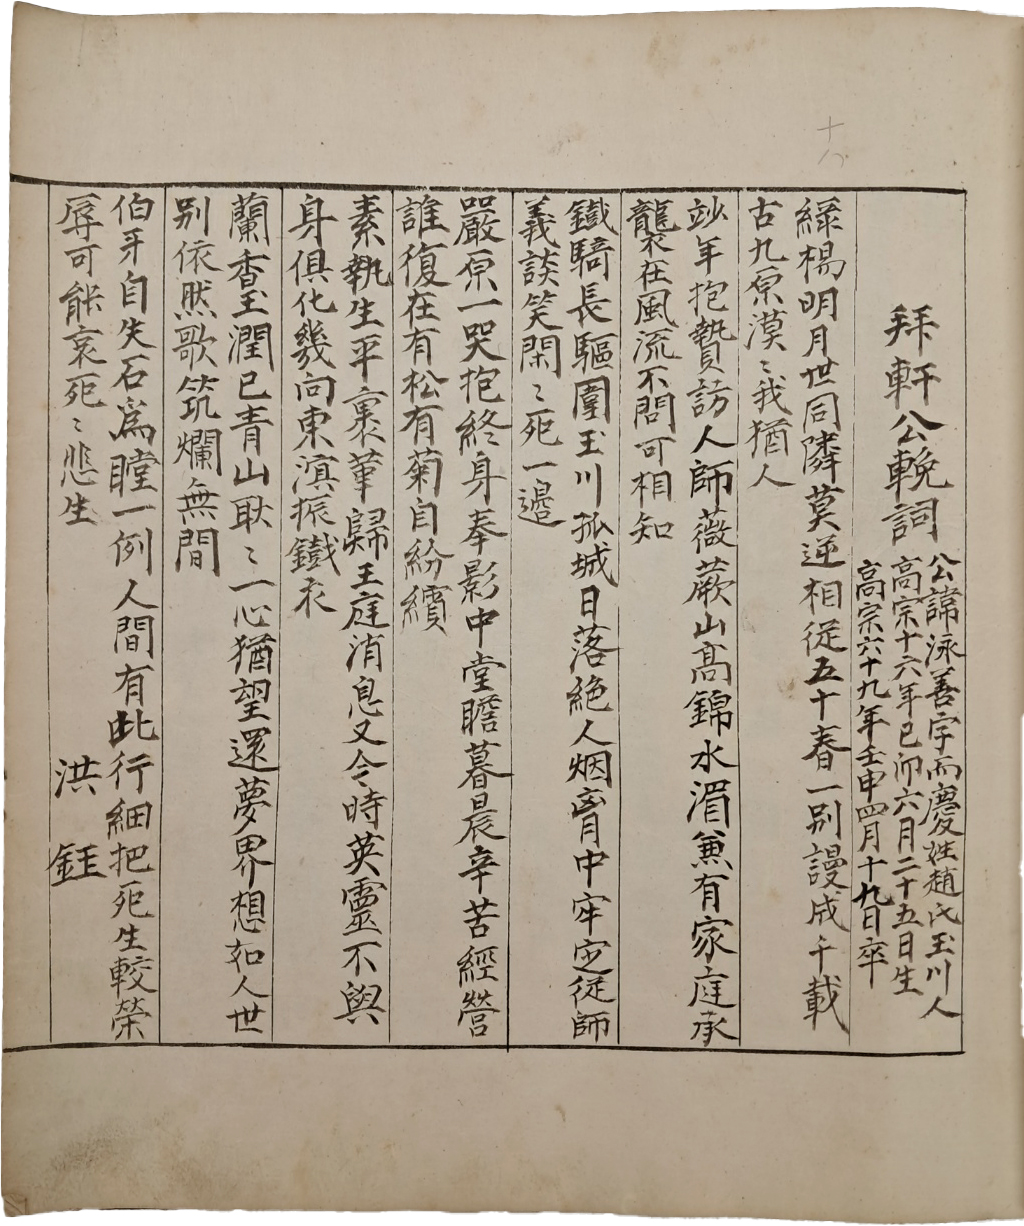 拜軒公輓詞
公諱泳善字而慶姓趙氏玉川人
高宗十六年己卯六月二十五日生
高宗六十九年壬申四月十九日卒
綠楊明月世同隣莫逆相從五十春一別謾成千載
古九原漠〻我猶人
竗年抱贄訪人師薇蕨山高錦水湄兼有家庭承
襲在風流不問可相知
鐵騎長驅圍玉川孤城日落絶人烟脅中牢定從師
義談笑閑〻死一邊
嚴原一哭抱終身奉影中堂瞻暮晨辛苦經營
誰復在有松有菊自紛繽
素執生平裹革歸王庭消息又令時英靈不與
身俱化幾向東溟振鐵衣
蘭香玉潤已青山耿〻一心猶望還夢界想如人世
別依然歌筑爛無間
伯牙自失石爲瞠一例人間有此行細把死生較榮
辱可能哀死〻悲生
洪鈺